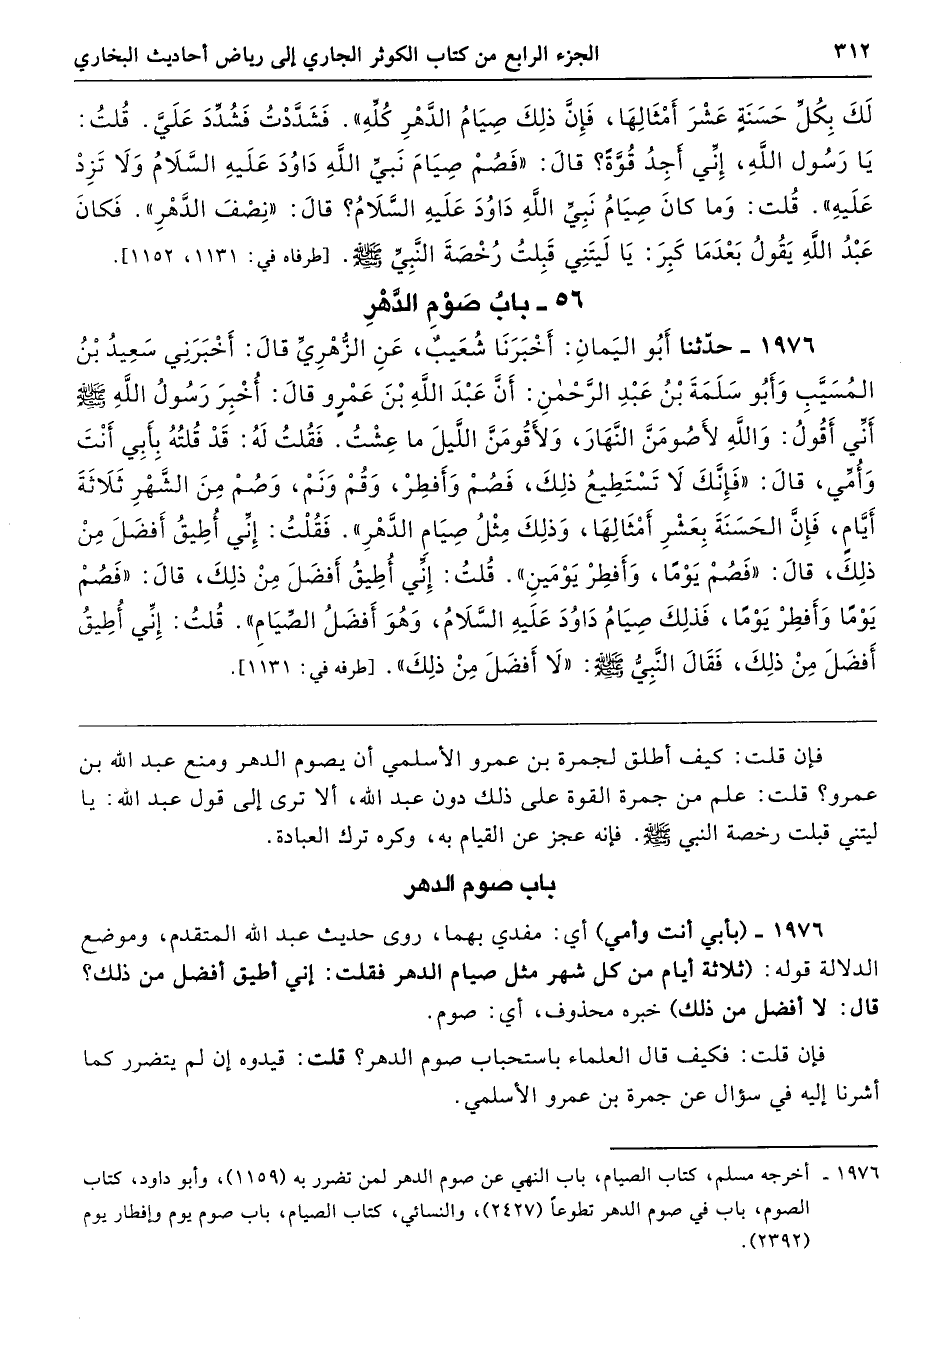 ٣١٢ الجزء الرابع من كتاب الكوثر الجاري إلى رياض أحاديث البخاري
لَكَ بِكُلِّ حَسَنَةٍ عَشْرَ أَمْثَالِهَا، فَإِنَّ ذلِكَ صِيَامُ الدَّهْرِ كُلِّهِ». فَشَدَّدْتُ فَشُدِّدَ عَلَيَّ. قُلتُ:
يَا رَسُولَ اللَّهِ، إِنِّي أَجِدُ قُوَّةً؟ قالَ: «فَصُمْ صِيَامَ نَبِيِّ اللَّهِ دَاوُدَ عَلَيهِ السَّلَامُ وَلَا تَزِدْ
عَلَيهِ». قُلت: وَما كانَ صِيَامُ نَبِيِّ اللَّهِ دَاوُدَ عَلَيهِ السَّلَامُ؟ قالَ: «نِصْفَ الدَّهْرِ». فَكانَ
عَبْدُ اللَّهِ يَقُولُ بَعْدَمَا كَبِرَ: يَا لَيتَنِي قَبِلتُ رُخْصَةَ النَّبِيِّ ﷺ. [طرفاه في: ١١٣١، ١١٥٢].
٥٦ ـ بابُ صَوْمِ الدَّهْرِ
١٩٧٦ ـ حدّثنا أَبُو اليَمانِ: أَخْبَرَنَا شُعَيبٌ، عَنِ الزُّهْرِيِّ قالَ: أَخْبَرَنِي سَعِيدُ بْنُ
المُسَيَّبِ وَأَبُو سَلَمَةَ بْنُ عَبْدِ الرَّحْمٰنِ: أَنَّ عَبْدَ اللَّهِ بْنَ عَمْرٍو قالَ: أُخْبِرَ رَسُولُ اللَّهِ ﷺ
أَنِّي أَقُولُ: وَاللَّهِ لأَصُومَنَّ النَّهَارَ، وَلأَقُومَنَّ اللَّيلَ ما عِشْتُ. فَقُلتُ لَهُ: قَدْ قُلتُهُ بِأَبِي أَنْتَ
وَأُمِّي، قالَ: «فَإِنَّكَ لَا تَسْتَطِيعُ ذلِكَ، فَصُمْ وَأَفطِرْ، وَقُمْ وَنَمْ، وَصُمْ مِنَ الشَّهْرِ ثَلَاثَةَ
أَيَّامٍ، فَإِنَّ الحَسَنَةَ بِعَشْرِ أَمْثَالِهَا، وَذلِكَ مِثْلُ صِيَامِ الدَّهْرِ». فَقُلْتُ: إِنِّي أُطِيقُ أَفضَلَ مِنْ
ذلِكَ، قالَ: «فَصُمْ يَوْمًا، وَأَفطِرْ يَوْمَينِ». قُلتُ: إِنِّي أُطِيقُ أَفضَلَ مِنْ ذلِكَ، قالَ: «فَصُمْ
يَوْمًا وَأَفطِرْ يَوْمًا، فَذلِكَ صِيَامُ دَاوُدَ عَلَيهِ السَّلَامُ، وَهُوَ أَفضَلُ الصِّيَامِ». قُلتُ: إِنِّي أُطِيقُ
أَفضَلَ مِنْ ذلِكَ، فَقَالَ النَّبِيُّ ﷺ: «لَا أَفضَلَ مِنْ ذلِكَ». [طرفه في: ١١٣١].
فإن قلت: كيف أطلق لجمرة بن عمرو الأسلمي أن يصوم الدهر ومنع عبد الله بن
عمرو؟ قلت: علم من جمرة القوة على ذلك دون عبد الله، ألا ترى إلى قول عبد الله: يا
ليتني قبلت رخصة النبي ﷺ. فإنه عجز عن القيام به، وكره ترك العبادة.
باب صوم الدهر
١٩٧٦ ـ (بأبي أنت وأمي) أي: مفدي بهما، روى حديث عبد الله المتقدم، وموضع
الدلالة قوله: (ثلاثة أيام من كل شهر مثل صيام الدهر فقلت: إني أطيق أفضل من ذلك؟
قال: لا أفضل من ذلك) خبره محذوف، أي: صوم.
فإن قلت: فكيف قال العلماء باستحباب صوم الدهر؟ قلت: قيدوه إن لم يتضرر كما
أشرنا إليه في سؤال عن جمرة بن عمرو الأسلمي.
١٩٧٦ ـ أخرجه مسلم، كتاب الصيام، باب النهي عن صوم الدهر لمن تضرر به (١١٥٩)، وأبو داود، كتاب
الصوم، باب في صوم الدهر تطوعاً (٢٤٢٧)، والنسائي، كتاب الصيام، باب صوم يوم وإفطار يوم
(٢٣٩٢).